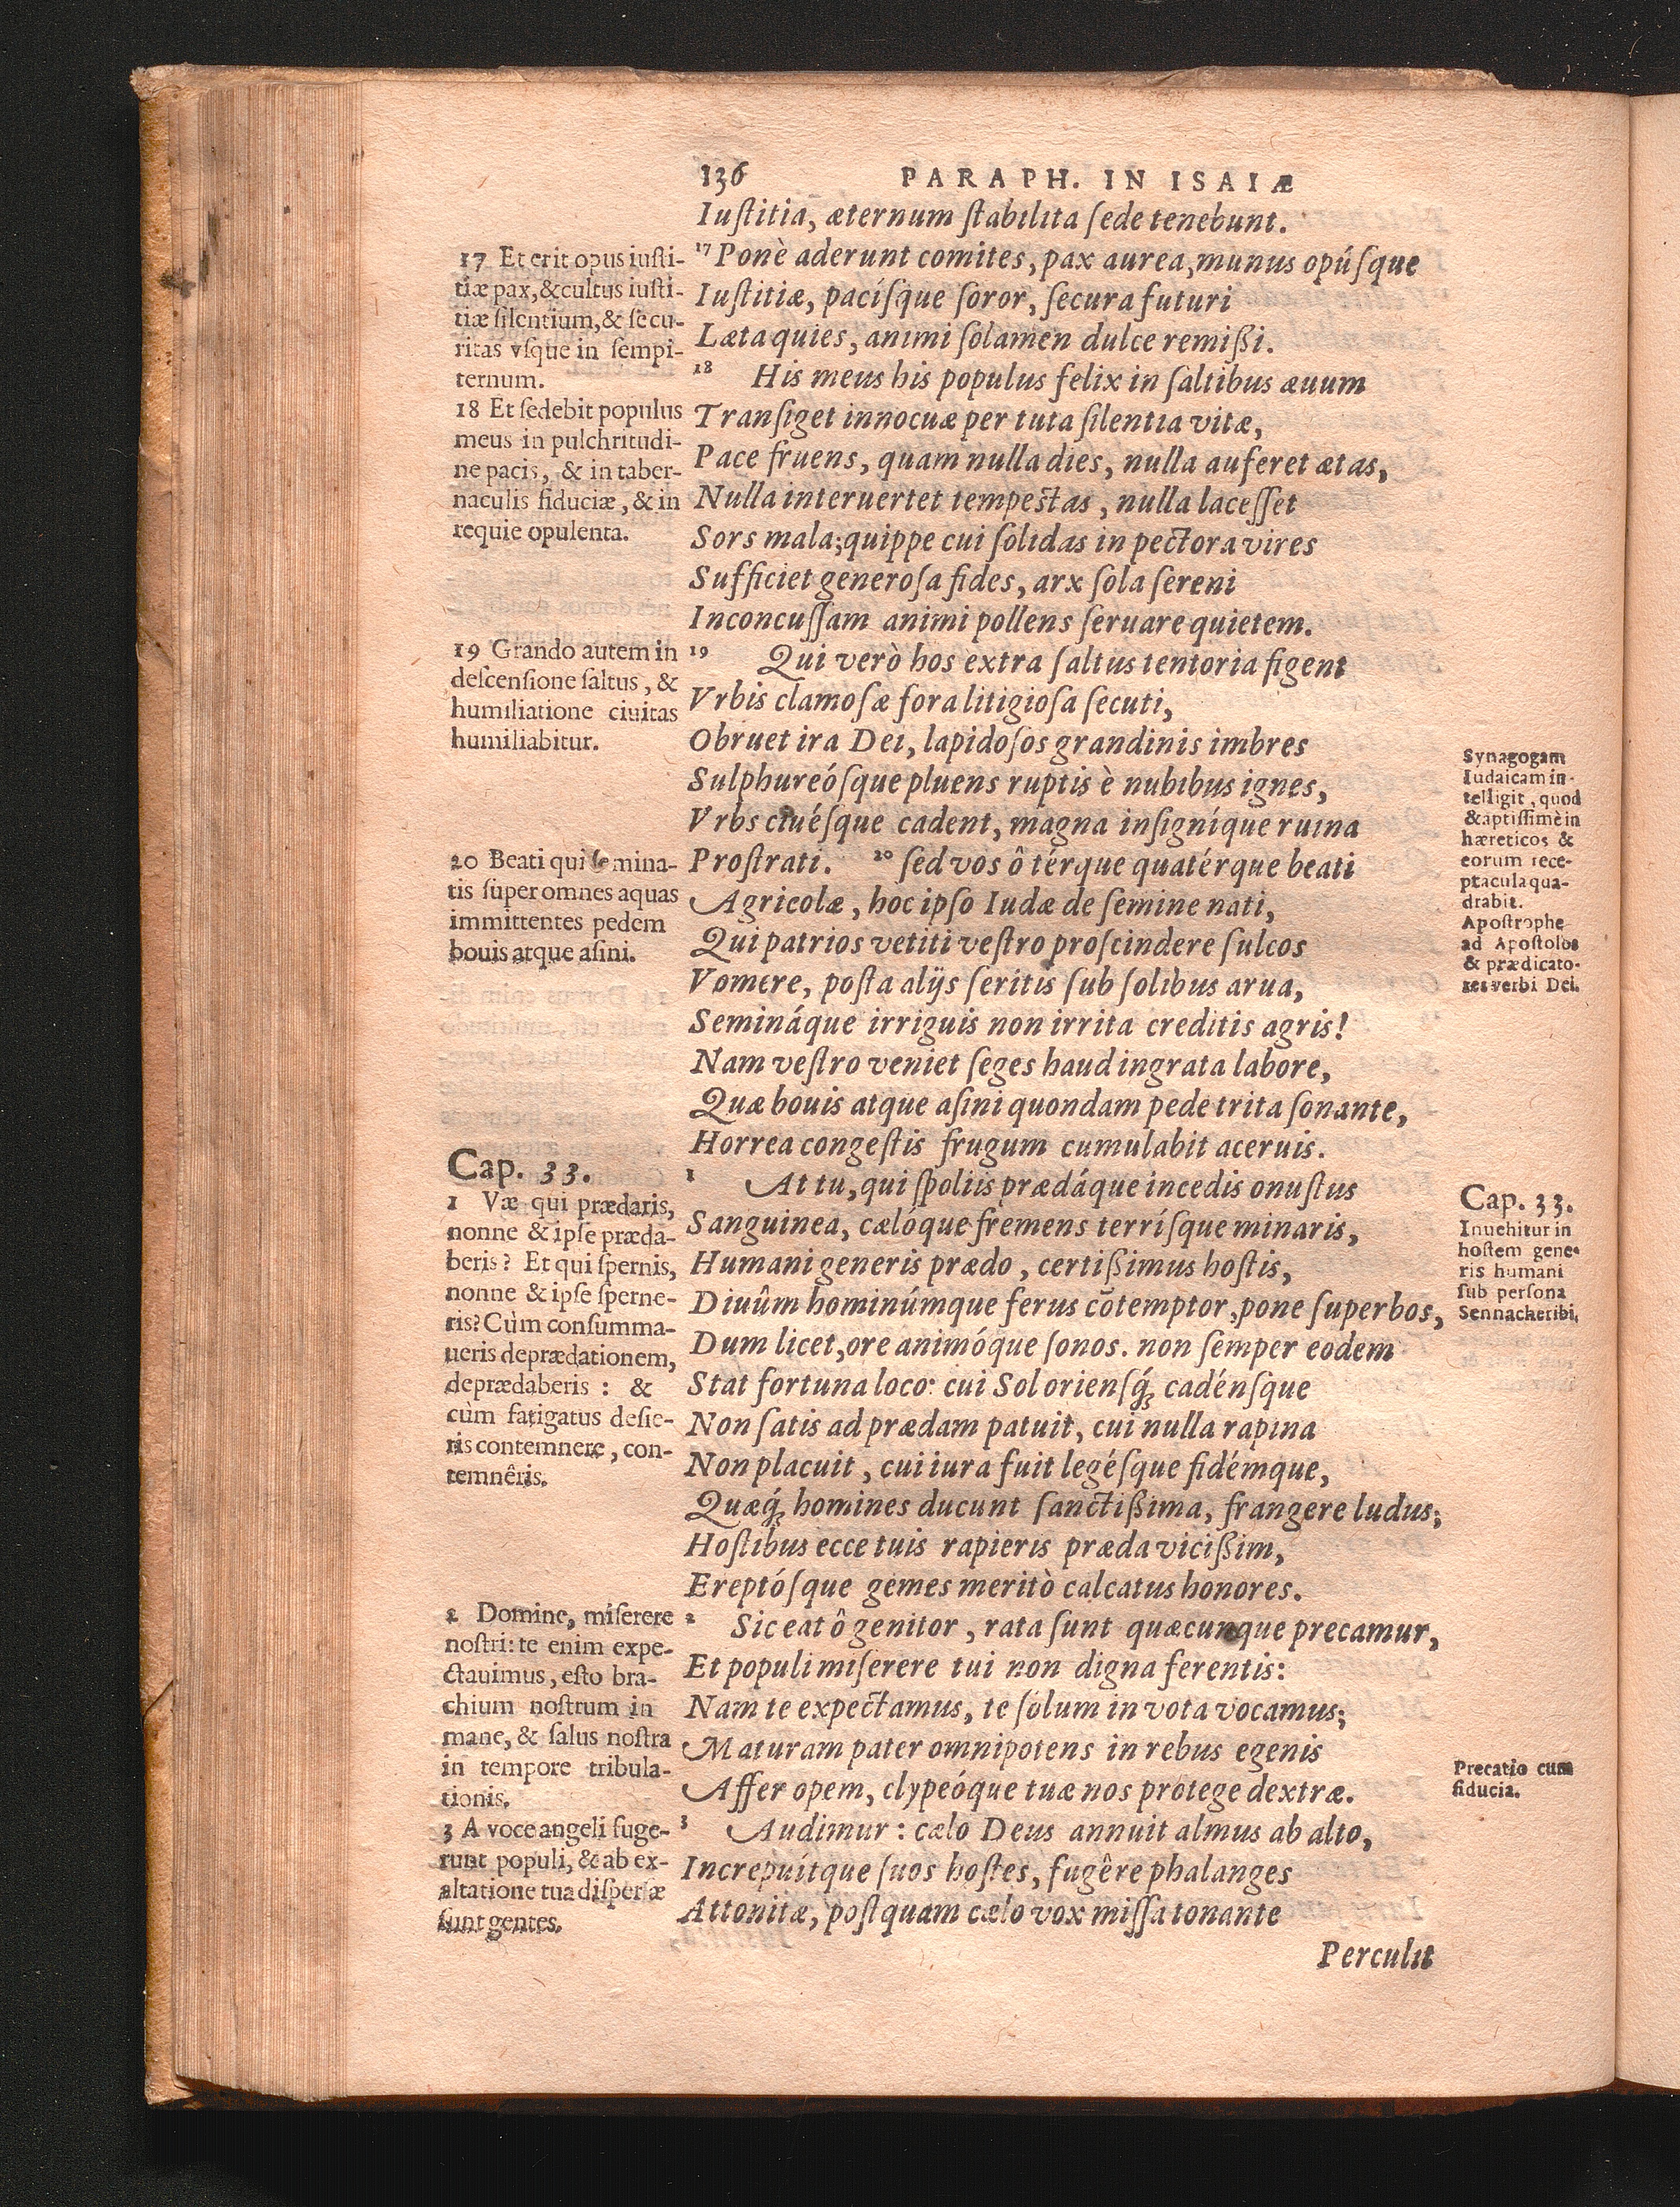 136 PARAPH. IN ISAIÆ
Iuſtitia, æternum ſtabilita ſede tenebunt.
17 Ponè aderunt comites, pax aurea, munus opúſque
Iuſtitiæ, paciſque ſoror, ſecura futuri
Læta quies, animi ſolamen dulce remißi.
18 His meus his populus felix in ſaltibus æuum
Tranſiget innocuæ per tuta ſilentia vitæ,
Pace fruens, quam nulla dies, nulla auferet ætas,
Nulla interuertet tempeſtas, nulla laceſſet
Sors mala; quippe cui ſolidas in pectora vires
Sufficiet generoſa fides, arx ſola ſereni
Inconcuſſam animi pollens ſeruare quietem.
19 Qui verò hos extra ſaltus tentoria figent
Vrbis clamoſæ fora litigioſa ſecuti,
Obruet ira Dei, lapidoſos grandinis imbres
Sulphureóſque pluens ruptis è nubibus ignes,
Vrbs ciuéſque cadent, magna inſigníque ruina
Proſtrati. 20 ſed vos ô térque quatérque beati
Agricolæ, hoc ipſo Iudæ de ſemine nati,
Qui patrios vetiti veſtro proſcindere ſulcos
Vomere, poſta alijs ſeritis ſub ſolibus arua,
Semináque irriguis non irrita creditis agris!
Nam veſtro veniet ſeges haud ingrata labore,
Quæ bouis atque aſini quondam pede trita ſonante,
Horrea congeſtis frugum cumulabit aceruis.
1 At tu, qui ſpoliis prædáque incedis onuſtus
Sanguinea, cælóque fremens terríſque minaris,
Humani generis prædo, certißimus hoſtis,
Diuûm hominúmque ferus cōtemptor, pone ſuperbos,
Dum licet, ore animóque ſonos. non ſemper eodem
Stat fortuna loco: cui Sol orienſq́; cadénſque
Non ſatis ad prædam patuit, cui nulla rapina
Non placuit, cui iura fuit legéſque fidémque,
Quæq́; homines ducunt ſanctißima, frangere ludus;
Hoſtibus ecce tuis rapieris præda vicißim,
Ereptóſque gemes meritò calcatus honores.
2 Sic eat ô genitor, rata ſunt quæcunque precamur,
Et populi miſerere tui non digna ferentis:
Nam te expectamus, te ſolum in vota vocamus;
Maturam pater omnipotens in rebus egenis
Affer opem, clypeóque tuæ nos protege dextræ.
3 Audimur: cælo Deus annuit almus ab alto,
Increpuítque ſuos hoſtes, fugêre phalanges
Attonitæ, poſtquam cælo vox miſſa tonante
Perculit
17 Et erit opus iuſti-
tiæ pax, & cultus iuſti-
tiæ ſilentium, & ſecu-
ritas vſque in ſempi-
ternum.
18 Et ſedebit populus
meus in pulchritudi-
ne pacis, & in taber-
naculis fiduciæ, & in
requie opulenta.
19 Grando autem in
deſcenſione ſaltus, &
humiliatione ciuitas
humiliabitur.
20 Beati qui ſemina-
tis ſuper omnes aquas
immittentes pedem
bouis atque aſini.
Cap. 33.
1 Væ qui prædaris,
nonne & ipſe præda-
beris? Et qui ſpernis,
nonne & ipſe ſperne-
ris? Cùm conſumma-
ueris deprædationem,
deprædaberis: &
cùm fatigatus deſie-
ris contemnere, con-
temnêris.
2 Domine, miſerere
noſtri: te enim expe-
ctauimus, eſto bra-
chium noſtrum in
mane, & ſalus noſtra
in tempore tribula-
tionis.
3 A voce angeli fuge-
runt populi, & ab ex-
altatione tua diſperſæ
ſunt gentes.
Synagogam
Iudaicam in-
telligit, quod
& aptiſſimè in
hæreticos &
eorum rece-
ptacula qua-
drabit.
Apoſtrophe
ad Apoſtolos
& prædicato-
res verbi Dei.
Cap. 33.
Inuehitur in
hoſtem gene-
ris humani
ſub perſona
Sennacheribi.
Precatio cum
fiducia.